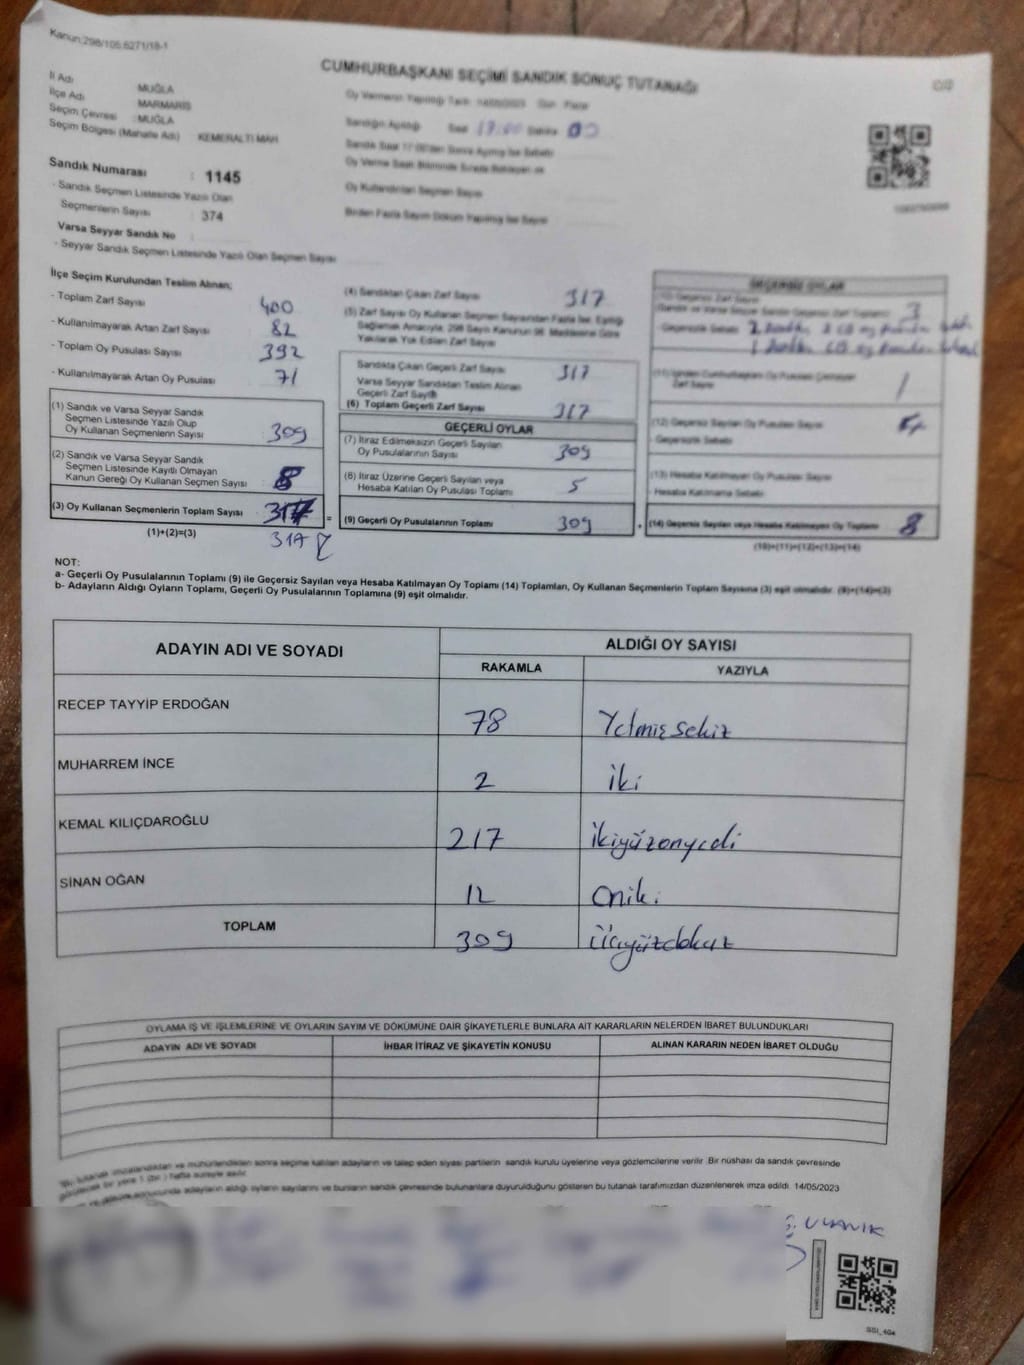 Kanun:298/105,6271/18-1
CUMHURBAŞKANI SEÇİMİ SANDIK SONUÇ TUTANAĞI
İl Adı : MUĞLA
İlçe Adı : MARMARİS
Seçim Çevresi : MUĞLA
Seçim Bölgesi (Mahalle Adı) : KEMERALTI MAH
Oy Vermenin Yapıldığı Tarih 14/05/2023 Gün Pazar
Sandığın Açıldığı Saat 17:00 Dakika 00
Oy Kullandırılan Seçmen Sayısı
Birden Fazla Sayım Döküm Yapılmış İse Sayısı
Sandık Numarası : 1145
- Sandık Seçmen Listesinde Yazılı Olan
Seçmenlerin Sayısı : 374
Varsa Seyyar Sandık No :
- Seyyar Sandık Seçmen Listesinde Yazılı Olan Seçmen Sayısı
İlçe Seçim Kurulundan Teslim Alınan;
- Toplam Zarf Sayısı 400
- Kullanılmayarak Artan Zarf Sayısı 82
- Toplam Oy Pusulası Sayısı 392
- Kullanılmayarak Artan Oy Pusulası 71
(1) Sandık ve Varsa Seyyar Sandık
Seçmen Listesinde Yazılı Olup
Oy Kullanan Seçmenlerin Sayısı 309
(2) Sandık ve Varsa Seyyar Sandık
Seçmen Listesinde Kayıtlı Olmayan
Kanun Gereği Oy Kullanan Seçmen Sayısı 8
(3) Oy Kullanan Seçmenlerin Toplam Sayısı 317 =
(1)+(2)=(3) 317
(4) Sandıktan Çıkan Zarf Sayısı 317
(5) Zarf Sayısı Oy Kullanan Seçmen Sayısından Fazla İse, Eşitliği
Sağlamak Amacıyla, 298 Sayılı Kanunun 98. Maddesine Göre
Yakılarak Yok Edilen Zarf Sayısı
Sandıkta Çıkan Geçerli Zarf Sayısı 317
Varsa Seyyar Sandıktan Teslim Alınan
Geçerli Zarf Sayısı
(6) Toplam Geçerli Zarf Sayısı 317
GEÇERLİ OYLAR
(7) İtiraz Edilmeksizin Geçerli Sayılan
Oy Pusulalarının Sayısı 309
(8) İtiraz Üzerine Geçerli Sayılan veya
Hesaba Katılan Oy Pusulası Toplamı 5
(9) Geçerli Oy Pusulalarının Toplamı 309 +
GEÇERSİZ OYLAR
(10) Geçersiz Zarf Sayısı 3
- Geçersizlik Sebebi
Zarf Sayısı 1
(12) Geçersiz Sayılan Oy Pusulası Sayısı
- Geçersizlik Sebebi
(13) Hesaba Katılmayan Oy Pusulası Sayısı
- Hesaba Katılmama Sebebi
(14) Geçersiz Sayılan veya Hesaba Katılmayan Oy Toplamı 8
(10)+(11)+(12)+(13)=(14)
NOT:
a- Geçerli Oy Pusulalarının Toplamı (9) ile Geçersiz Sayılan veya Hesaba Katılmayan Oy Toplamı (14) Toplamları, Oy Kullanan Seçmenlerin Toplam Sayısına (3) eşit olmalıdır. (9)+(14)=(3)
b- Adayların Aldığı Oyların Toplamı, Geçerli Oy Pusulalarının Toplamına (9) eşit olmalıdır.
ADAYIN ADI VE SOYADI ALDIĞI OY SAYISI
RAKAMLA YAZIYLA
RECEP TAYYİP ERDOĞAN 78 Yetmiş sekiz
MUHARREM İNCE 2 iki
KEMAL KILIÇDAROĞLU 217 ikiyüzonyedi
SİNAN OĞAN 12 oniki
TOPLAM 309 üçyüzdokuz
OYLAMA İŞ VE İŞLEMLERİNE VE OYLARIN SAYIM VE DÖKÜMÜNE DAİR ŞİKAYETLERLE BUNLARA AİT KARARLARIN NELERDEN İBARET BULUNDUKLARI
ADAYIN ADI VE SOYADI İHBAR İTİRAZ VE ŞİKAYETİN KONUSU ALINAN KARARIN NEDEN İBARET OLDUĞU
tutanak imzalandıktan ve mühürlendikten sonra seçime katılan adayların ve talep eden siyasi partilerin sandık kurulu üyelerine veya gözlemcilerine verilir. Bir nüshası da sandık çevresinde
yere 1 (bir) hafta süreyle asılır.
adayların aldığı oyların sayılarını ve bunların sandık çevresinde bulunanlara duyurulduğunu gösteren bu tutanak tarafımızdan düzenlenerek imza edildi. 14/05/2023
UYANIK